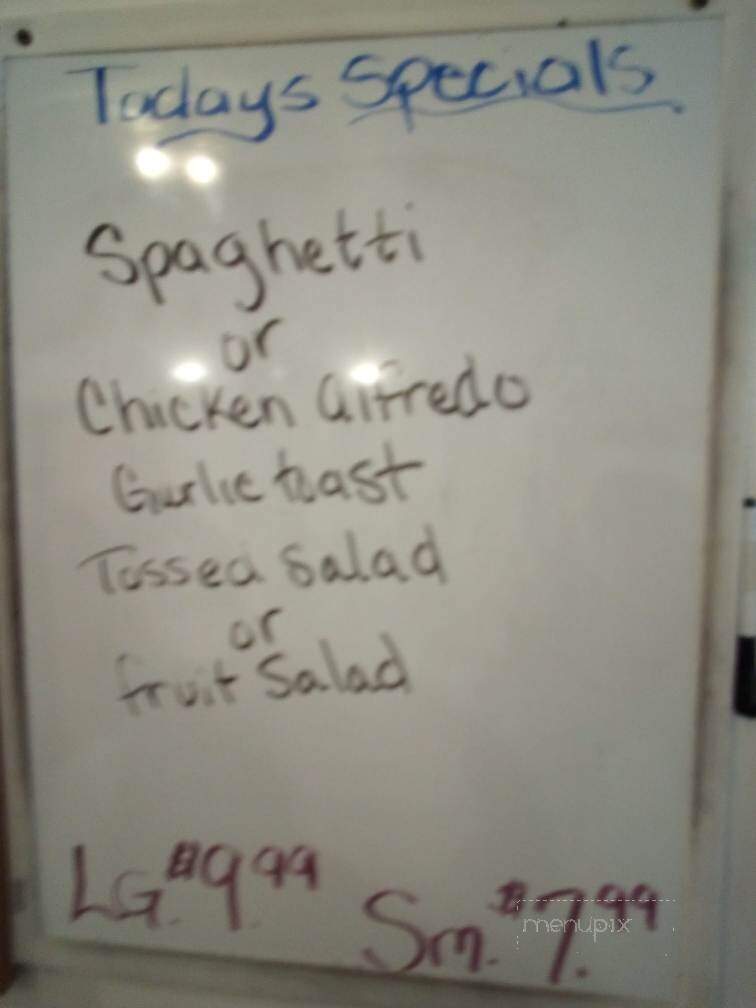 Todays Specials
Spaghetti
or
Chicken alfredo
Garlic toast
Tossed Salad
or
fruit Salad
LG. $9.99 Sm. $7.99
menupix